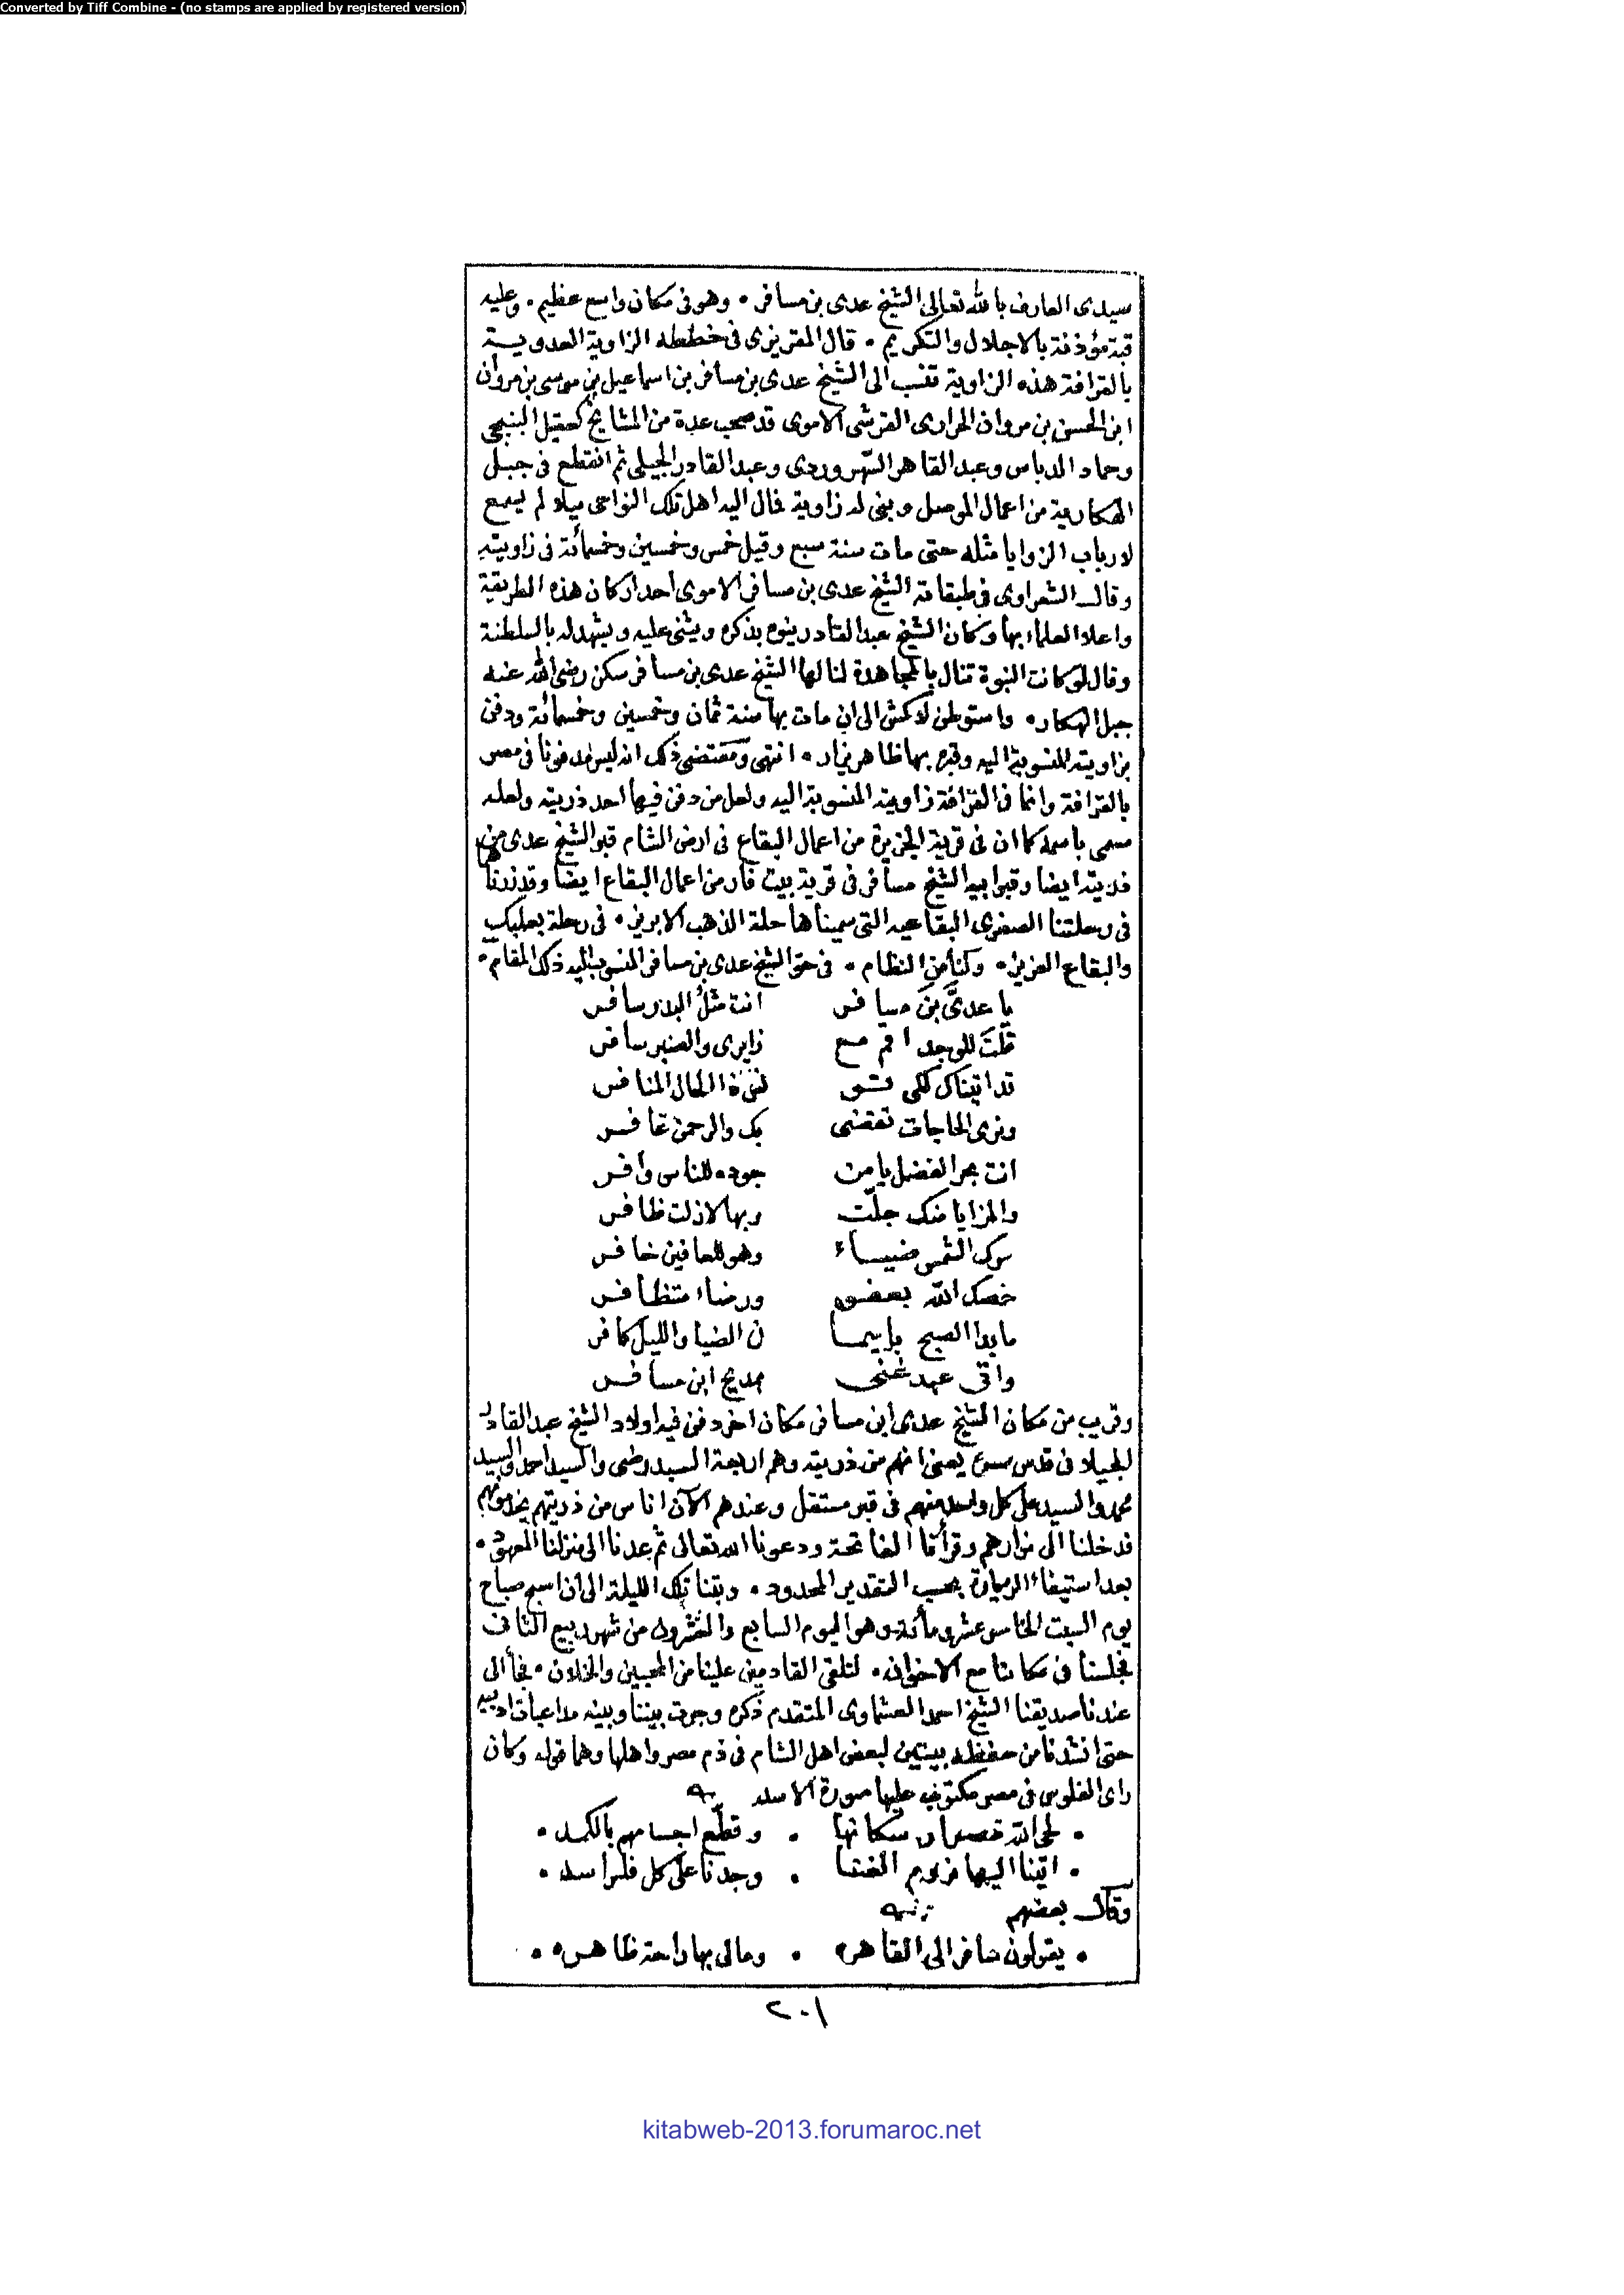 Converted by Tiff Combine - (no stamps are applied by registered version)
سيدى العارف بالله تعالى الشيخ عدى بن مسافر • وهو فى مكان واسع عظيم • وعليه
قبة مؤذنة بالاجلال والتكريم • قال المقريزى فى خططه الزاوية العدوية
بالقرافة هذه الزاوية تنسب الى الشيخ عدى بن مسافر بن اسماعيل بن موسى بن مروان
ابن الحسن بن مروان الهكارى القرشى الاموى قد صحب عدة من المشايخ كعقيل المنبجى
وحماد الدباس وعبد القاهر السهروردى وعبد القادر الجيلى ثم انقطع فى جبل
الهكارية من اعمال الموصل وبنى له زاوية فمال اليه اهل تلك النواحى ميلا لم يسمع
لارباب الزوايا مثله حتى مات سنة سبع وقيل خمس وخمسين وخمسمائة فى زاويته
وقال الشعراوى فى طبقاته الشيخ عدى بن مسافر الاموى احد اركان هذه الطريقة
واعلا العلماء بها وكان الشيخ عبد القادر ينوه بذكره ويثنى عليه ويشهد له بالسلطنة
وقال لو كانت النبوة تنال بالمجاهدة لنالها الشيخ عدى بن مسافر سكن رضى الله عنه
جبل الهكار • واستوطن لالش الى ان مات بها سنة ثمان وخمسين وخمسمائة ودفن
بزاويته المنسوبة اليه وقبره بها ظاهر يزار • انتهى ومقتضى ذلك انه ليس مدفونا فى مصر
بالقرافة وانما فى القرافة زاويته المنسوبة اليه ولعل من دفن فيها احد ذريته ولعله
مسمى باسمه كما ان فى قرية الجزيرة من اعمال البقاع فى ارض الشام قبر الشيخ عدى من
ذريته ايضا وقبر ابيه الشيخ مسافر فى قرية بيت فار من اعمال البقاع ايضا وقد زرناهما
فى رحلتنا الصغرى البقاعيه التى سميناها حلة الذهب الابريز • فى رحلة بعلبك
والبقاع العزيز • وقلنا من النظام • فى حق الشيخ عدى بن مسافر المنسوب اليه ذلك المقام •
يا عدى بن مسافر انت مثل البدر سافر
قلت للوجد اقم مع زايرى والصبر سافر
قد اتيناك لكى
ونرى الحاجات تقضى بك والرحمن غافر
انت بحر الفضل يا من جوده للناس وافر
والمزايا منك جلت وبها لازلت ظافر
سرك الشمس ضياء وهو للعافين خافر
خصك الله بعفو ورضاء متظافر
ما بدا الصبح بايما ن الضيا والليل كافر
واتى عبد غنى بمديح ابن مسافر
وقريب من مكان الشيخ عدى ابن مسافر مكان اخر دفن فيه اولاد الشيخ عبد القادر
الجيلانى قدس سره يعنى انهم من ذريته وهم اربعة السيد رضى والسيد احمد والسيد
محمد والسيد على كل واحد منهم فى قبر مستقل وعندهم الآن اناس من ذريتهم يخدمونهم
فدخلنا الى مزارهم وقرأنا الفاتحة ودعونا الله تعالى ثم عدنا الى منزلنا المعهود •
بعد استيفاء الزيارة بحسب التقدير المحدود • وبتنا تلك الليلة الى ان اسبح صباح
يوم السبت الخامس عشر ومائة وهو اليوم السابع والعشرون من شهر ربيع الثانى
فجلسنا فى مكاننا مع الاخوان • لتلقى القادمين علينا من المحبين والخلان • فجأ الى
عندنا صديقنا الشيخ احمد العشماوى المتقدم ذكره وجرت بيننا وبينه مداعبات ادبيه
حتى انشدنا من حفظه بيتين لبعض اهل الشام فى ذم مصر واهلها وهما قوله وكان
راى الفلوس فى مصر مكتوب عليها صورة الاسد
• لحى الله مصرا وسكانها • وقطع اجسامهم بالكبد •
• اتينا اليها نروم الغنا • وجدنا على كل فلس اسد •
وقال بعضهم
• يقولون سافر الى القاهره • ومالى بها راحة ظاهره •
٢٠١
kitabweb-2013.forumaroc.net